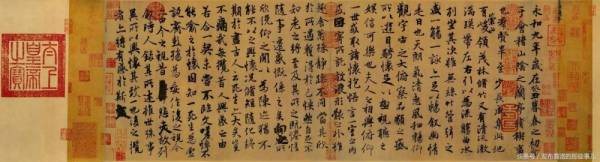 永和九年歲在癸丑暮春之初會
于會稽山陰之蘭亭脩稧事
也群賢畢至少長咸集此地
有峻領茂林脩竹又有清流激
湍暎帶左右引以為流觴曲水
列坐其次雖無絲竹管弦之
盛一觴一詠亦足以暢敘幽情
是日也天朗氣清惠風和暢仰
觀宇宙之大俯察品類之盛
所以遊目騁懷足以極視聽之
娛信可樂也夫人之相與俯仰
一世或取諸懷抱悟言一室之內
或因寄所託放浪形骸之外雖
趣舍萬殊靜躁不同當其欣
於所遇蹔得於己怏然自足不
知老之將至及其所之既惓情
隨事遷感慨係之矣向之所
欣俛仰之閒以為陳跡猶不
能不以之興懷況脩短隨化終
期於盡古人云死生亦大矣豈
不痛哉每攬昔人興感之由
若合一契未嘗不臨文嗟悼不
能喻之於懷固知一死生為虛
誕齊彭殤為妄作後之視今
亦由今之視昔悲夫故列
敘時人錄其所述雖世殊事
異所以興懷其致一也後之攬
者亦將有感於斯文
太上
皇帝
之寶